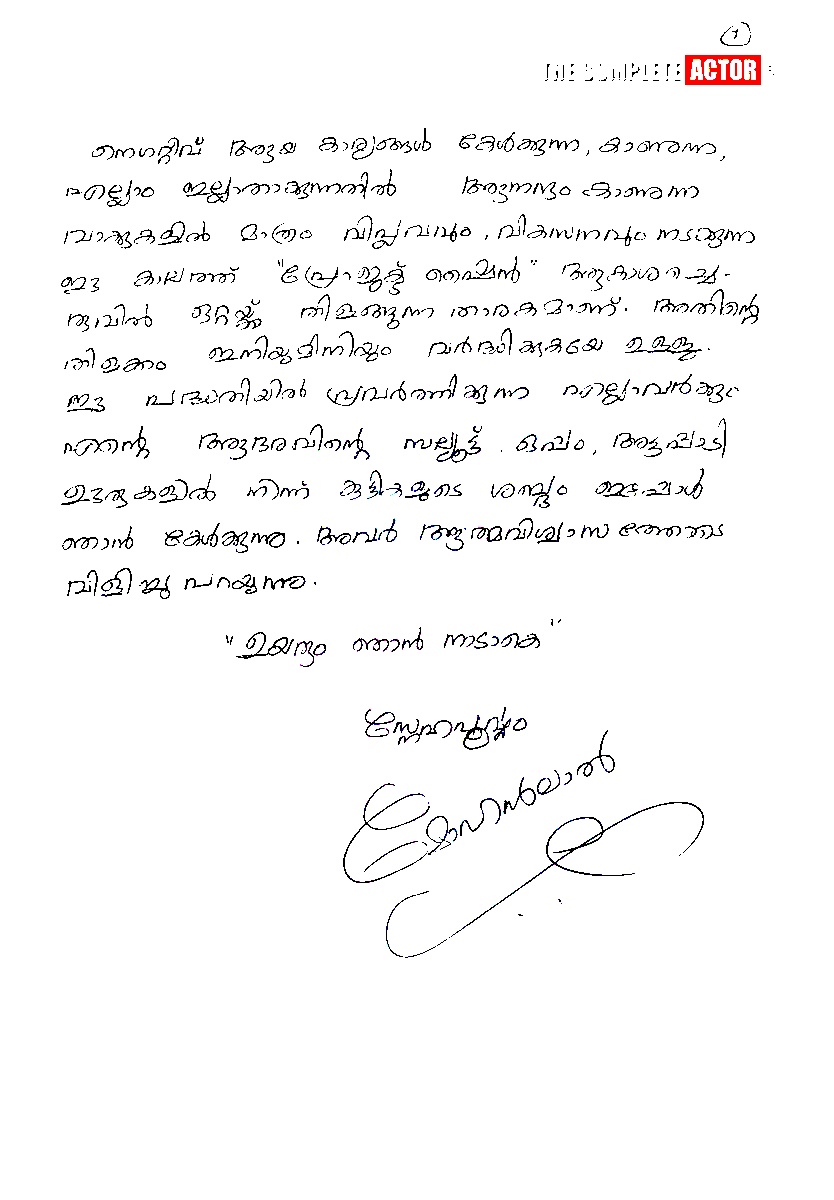 7
THE COMPLETE ACTOR
നെഗറ്റീവ് ആയ കാര്യങ്ങൾ കേൾക്കുന്ന, കാണുന്ന,
എല്ലാം ഇല്ലാതാക്കുന്നതിൽ ആനന്ദം കാണുന്ന
വാക്കുകളിൽ മാത്രം വിപ്ലവവും, വികസനവും നടക്കുന്ന
ഈ കാലത്ത് "പ്രോജക്ട് ഷൈൻ" ആകാശച്ചെ-
രുവിൽ ഒറ്റയ്ക്ക് തിളങ്ങുന്ന താരകമാണ്. അതിന്റെ
തിളക്കം ഇനിയുമിനിയും വർദ്ധിക്കുകയേ ഉള്ളൂ.
ഈ പദ്ധതിയിൽ പ്രവർത്തിക്കുന്ന എല്ലാവർക്കും
എന്റെ ആദരവിന്റെ സല്യൂട്ട്. ഒപ്പം, അട്ടപ്പാടി
ഊരുകളിൽ നിന്ന് കുട്ടികളുടെ ശബ്ദം ഇപ്പോൾ
ഞാൻ കേൾക്കുന്നു. അവർ ആത്മവിശ്വാസത്തോടെ
വിളിച്ചു പറയുന്നു.
"ഉയരും ഞാൻ നാടാകെ"
സ്നേഹപൂർവ്വം
മോഹൻലാൽ